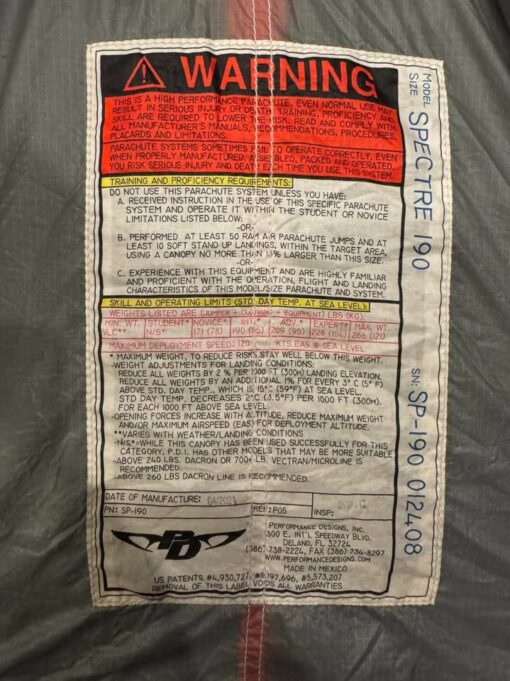 WARNING
THIS IS A HIGH PERFORMANCE PARACHUTE. EVEN NORMAL USE MAY
RESULT IN SERIOUS INJURY OR DEATH. TRAINING, PROFICIENCY AND
SKILL ARE REQUIRED TO LOWER THE RISK. READ AND COMPLY WITH
ALL MANUFACTURER'S MANUALS, RECOMMENDATIONS, PROCEDURES,
PLACARDS AND LIMITATIONS.
PARACHUTE SYSTEMS SOMETIMES FAIL TO OPERATE CORRECTLY, EVEN
WHEN PROPERLY MANUFACTURED, ASSEMBLED, PACKED AND OPERATED.
YOU RISK SERIOUS INJURY AND DEATH EACH TIME YOU USE THIS SYSTEM.
TRAINING AND PROFICIENCY REQUIREMENTS:
DO NOT USE THIS PARACHUTE SYSTEM UNLESS YOU HAVE:
A. RECEIVED INSTRUCTION IN THE USE OF THIS SPECIFIC PARACHUTE
SYSTEM AND OPERATE IT WITHIN THE STUDENT OR NOVICE
LIMITATIONS LISTED BELOW:
-OR-
B. PERFORMED AT LEAST 50 RAM AIR PARACHUTE JUMPS AND AT
LEAST 10 SOFT STAND UP LANDINGS, WITHIN THE TARGET AREA,
USING A CANOPY NO MORE THAN 15% LARGER THAN THIS SIZE.
-OR-
C. EXPERIENCE WITH THIS EQUIPMENT AND ARE HIGHLY FAMILIAR
AND PROFICIENT WITH THE OPERATION, FLIGHT AND LANDING
CHARACTERISTICS OF THIS MODEL/SIZE PARACHUTE AND SYSTEM.
SKILL AND OPERATING LIMITS (STD. DAY TEMP. AT SEA LEVEL):
WEIGHTS LISTED ARE (JUMPER + CLOTHING + EQUIPMENT) LBS (KG)
MIN. WT. STUDENT* NOVICE* INT.* ADV.* EXPERT* MAX. WT.
VLC** N/S* 171 (78) 190 (86) 209 (95) 228 (104) 266 (121)
MAXIMUM DEPLOYMENT SPEED: 120 KTS EAS @ SEA LEVEL
* MAXIMUM WEIGHT, TO REDUCE RISK STAY WELL BELOW THIS WEIGHT.
-WEIGHT ADJUSTMENTS FOR LANDING CONDITIONS:
REDUCE ALL WEIGHTS BY 2% PER 1000 FT (300M) LANDING ELEVATION.
REDUCE ALL WEIGHTS BY AN ADDITIONAL 1% FOR EVERY 3°C (5°F)
ABOVE STD. DAY TEMP., WHICH IS 15°C (59°F) AT SEA LEVEL.
STD DAY TEMP. DECREASES 2°C (3.5°F) PER 1000 FT (300M).
FOR EACH 1000 FT ABOVE SEA LEVEL.
-OPENING FORCES INCREASE WITH ALTITUDE, REDUCE MAXIMUM WEIGHT
AND/OR MAXIMUM AIRSPEED (EAS) FOR DEPLOYMENT ALTITUDE.
**VARIES WITH WEATHER/LANDING CONDITIONS
-N/S*=WHILE THIS CANOPY HAS BEEN USED SUCCESSFULLY FOR THIS
CATEGORY, P.D.I. HAS OTHER MODELS THAT MAY BE MORE SUITABLE
-ABOVE 240 LBS. DACRON OR 700# LB. VECTRAN/MICROLINE
RECOMMENDED.
-ABOVE 260 LBS DACRON LINE IS RECOMMENDED.
DATE OF MANUFACTURE: 04/2021
PN: SP-190 REF: P05 INSP:
PD
PERFORMANCE DESIGNS, INC.
1300 E. INT'L SPEEDWAY BLVD.
DELAND, FL 32724
(386) 738-2224, FAX (386) 734-8297
WWW.PERFORMANCEDESIGNS.COM
MADE IN MEXICO
US PATENTS #4,930,727, #5,197,696, #5,573,207
REMOVAL OF THIS LABEL VOIDS ALL WARRANTIES
MODEL SPECTRE 190
SIZE
SN: SP-190 012408